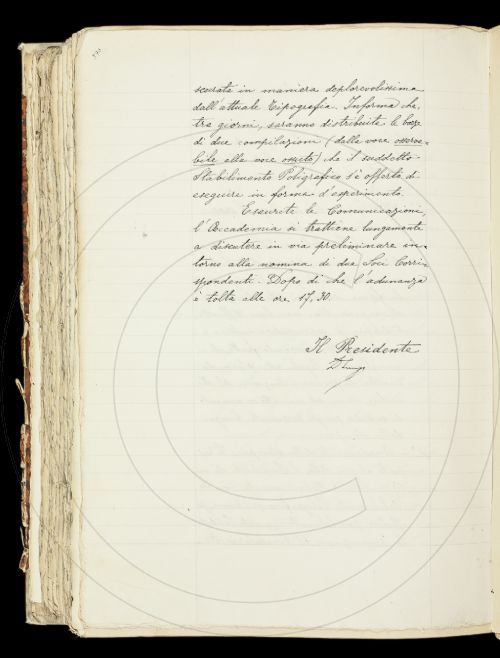 scurata in maniera deplorevolissima
dall'attuale Tipografia. Informa che,
tra giorni, saranno distribuite le bozze
di due compilazioni (dalla voce osserva-
bile alla voce ossuto) che il suddetto
Stabilimento Poligrafico s'è offerto di
eseguire in forma d'esperimento.
Esaurite le Comunicazioni,
l'Accademia si trattiene lungamente
a discutere in via preliminare in-
torno alla nomina di due Soci Corri-
spondenti. Dopo di che l'adunanza
è tolta alle ore 17,30.
Il Presidente